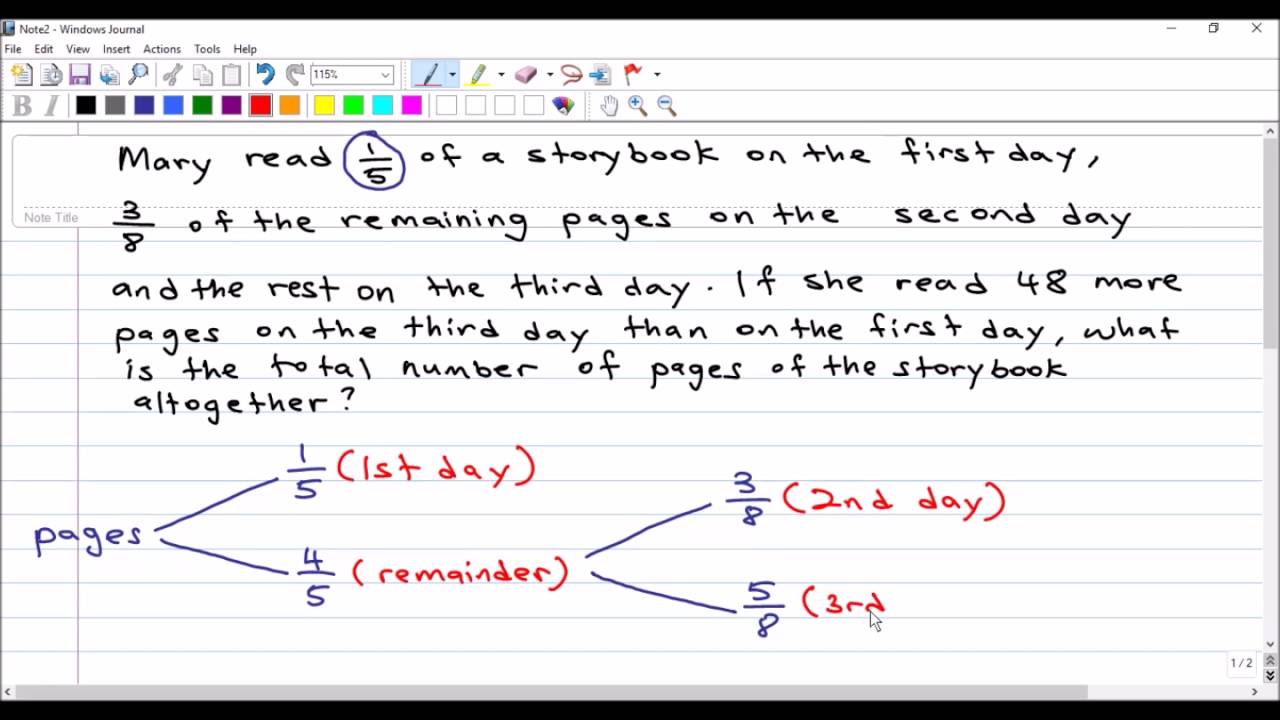 Note2 - Windows Journal
File Edit View Insert Actions Tools Help
115%
B I
Mary read 1/5 of a storybook on the first day,
Note Title
3/8 of the remaining pages on the second day
and the rest on the third day. If she read 48 more
pages on the third day than on the first day, what
is the total number of pages of the storybook
altogether?
1/5 (1st day)
3/8 (2nd day)
pages
4/5 (remainder)
5/8 (3rd
1/2